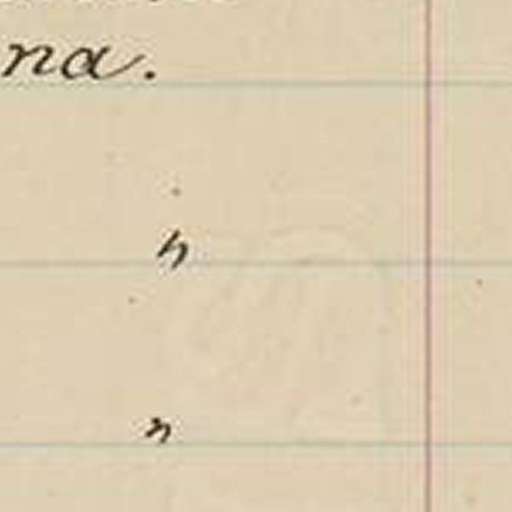 na.
"
"